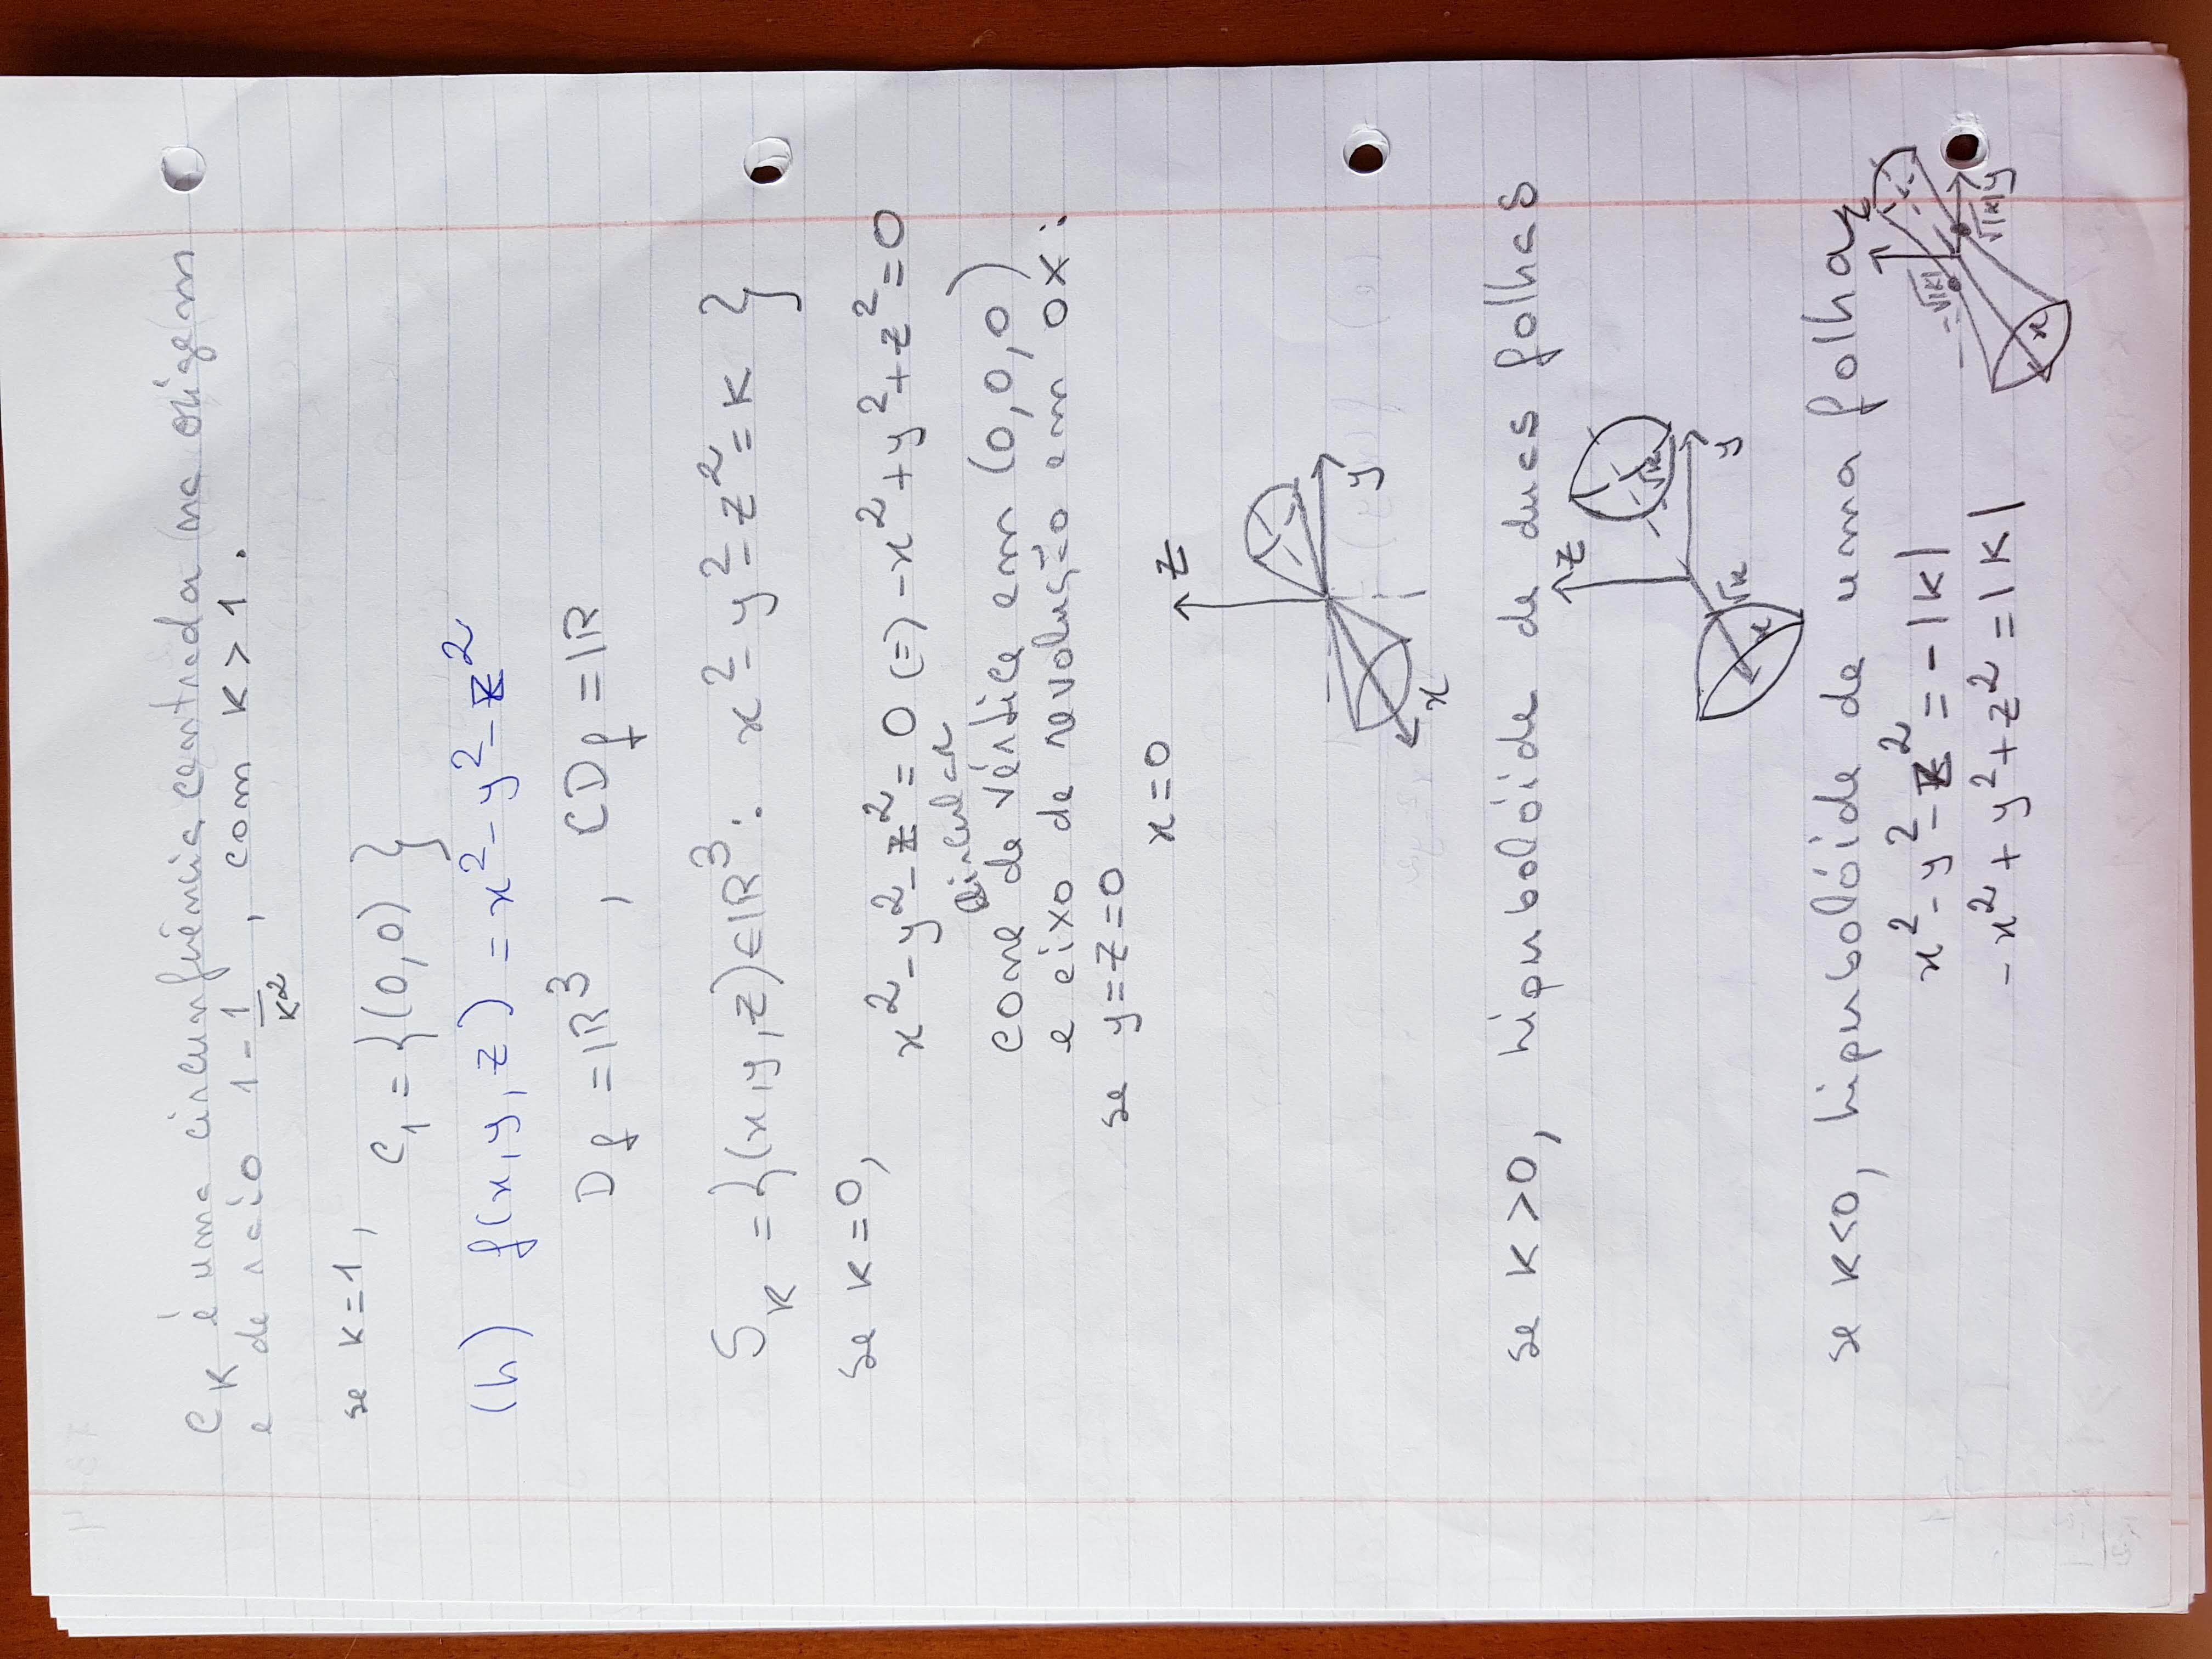 C_K é uma circunferência centrada na origem
e de raio 1 - 1/K², com K > 1.
se K = 1,
C₁ = {(0,0)}
(h) f(x,y,z) = x² - y² - z²
D_f = IR³, CD_f = IR
S_K = {(x,y,z) ∈ IR³: x² - y² - z² = K}
se K = 0,
x² - y² - z² = 0 (=) -x² + y² + z² = 0
circular
cone de vértice em (0,0,0)
e eixo de revolução em OX:
se y = z = 0
x = 0
z
y
x
se K > 0, hiperbolóide de duas folhas
z
√K
y
√K
x
se K < 0, hiperbolóide de uma folha
x² - y² - z² = -|K|
-x² + y² + z² = |K|
-√|K|
√|K| y
x